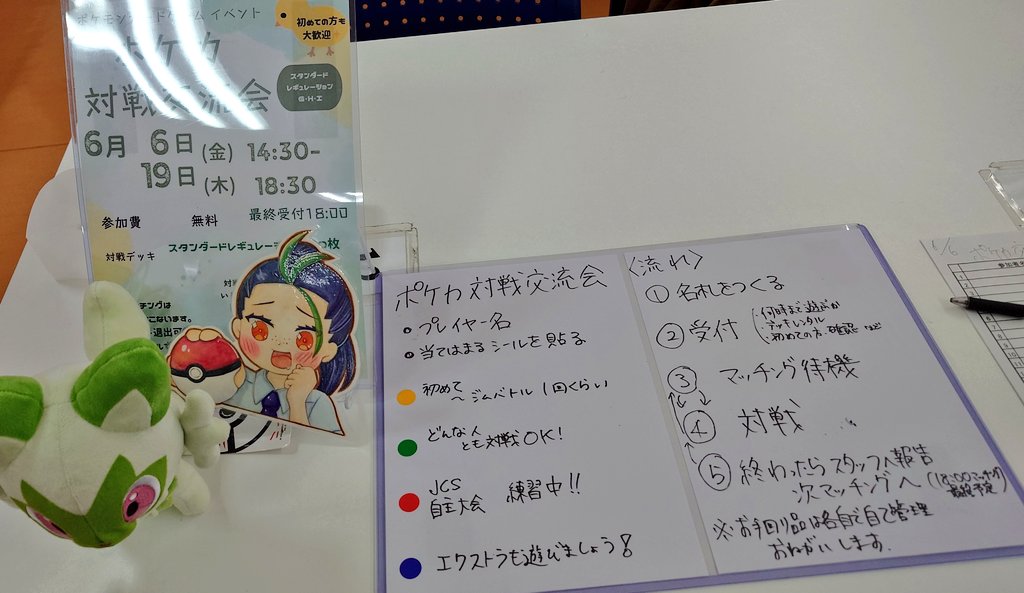 ポケモンカードゲーム イベント
初めての方も
大歓迎
ポケカ
対戦交流会
スタンダード
レギュレーション
G・H・I
6月 6日(金) 14:30-
19日(木) 18:30
参加費 無料 最終受付18:00
対戦デッキ スタンダードレギュレー
ポケカ対戦交流会
・プレイヤー名
・当てはまるシールを貼る
初めて
～ジムバトル1回くらい
どんな人
とも対戦OK!
JCS
自主大会 練習中!!
エクストラも遊びましょう!
〈流れ〉
① 名札をつくる
② 受付
・何時まで遊ぶか
・デッキレンタル
・初めての方 確認 など
③ マッチング待機
④ 対戦
⑤ 終わったらスタッフへ報告
次マッチングへ (18:00マッチング
最終予定)
※お手回り品は各自で管理
おねがいします。
6/6 ポケカ